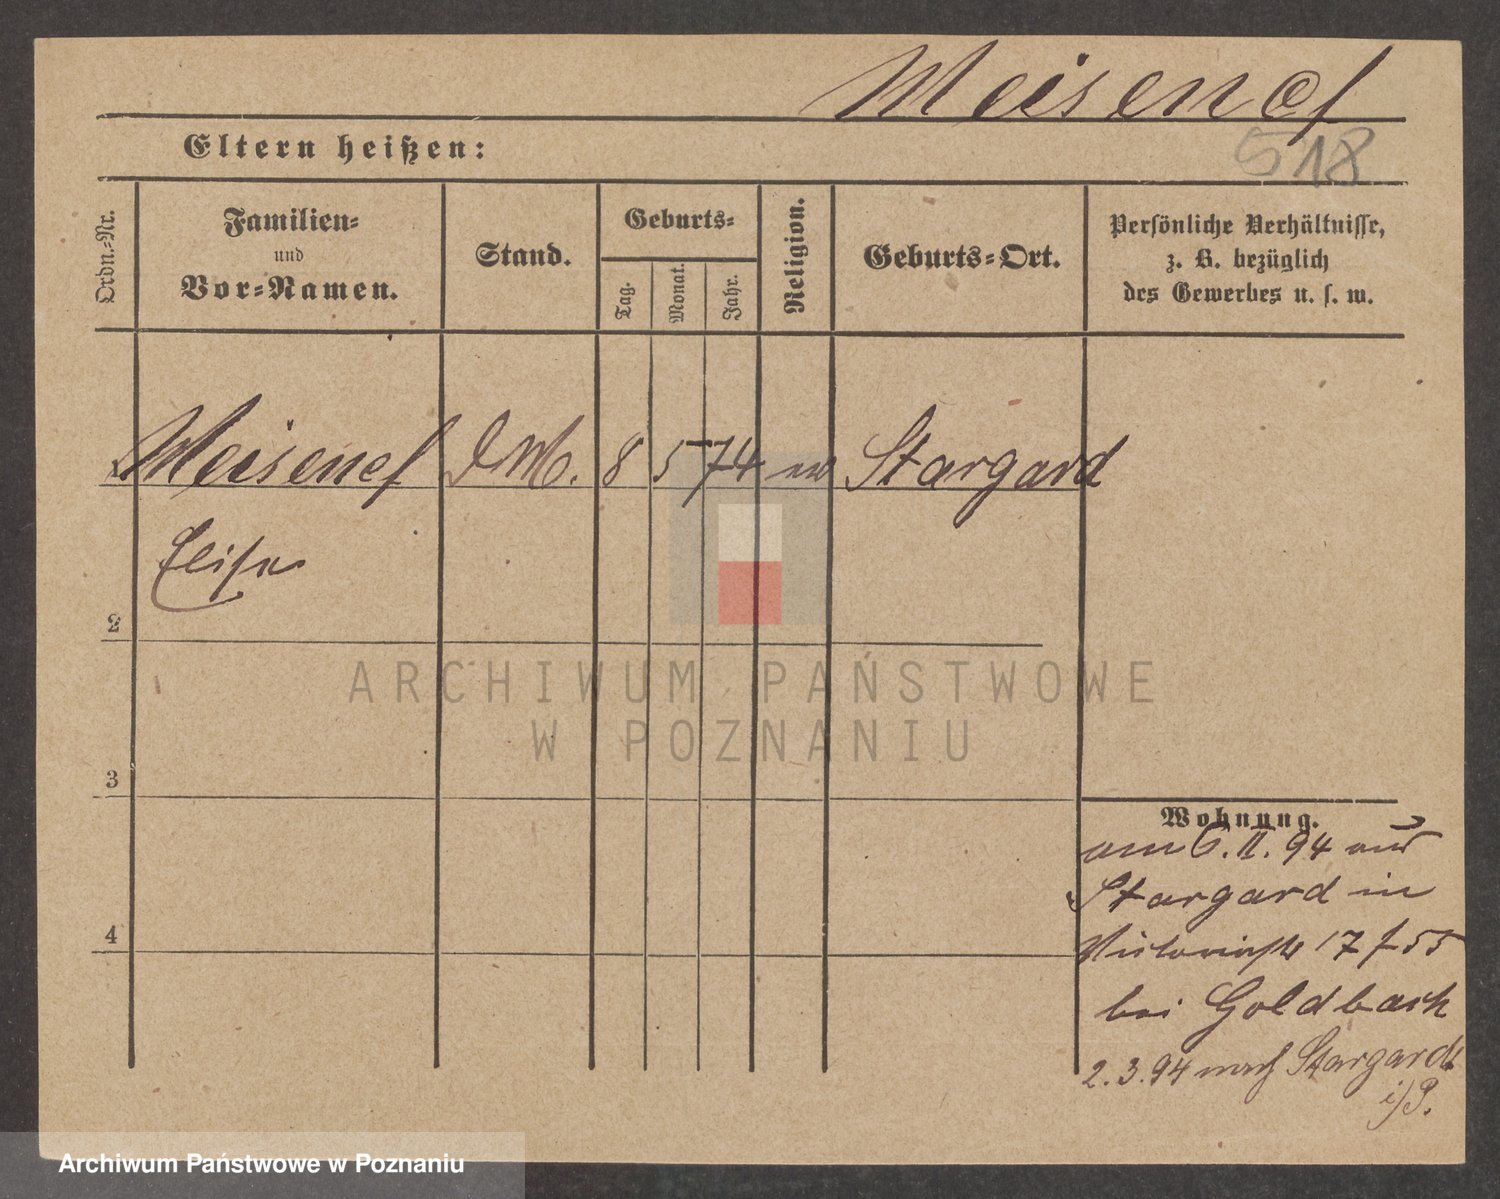 Meisenef
518
Eltern heißen:
Ordn.-Nr.
Familien-
und
Vor-Namen.
Stand.
Geburts-
Tag.
Monat.
Jahr.
Religion.
Geburts-Ort.
Persönliche Verhältnisse,
z. B. bezüglich
des Gewerbes u. s. w.
1 Meisenef D M. 8 5 74 ev Stargard
Elise
2
ARCHIWUM PAŃSTWOWE
W POZNANIU
3
Wohnung.
am 6. II. 94 aus
Stargard in
17
bei Goldbach
4
2.3.94 nach Stargard
i/P.
Archiwum Państwowe w Poznaniu